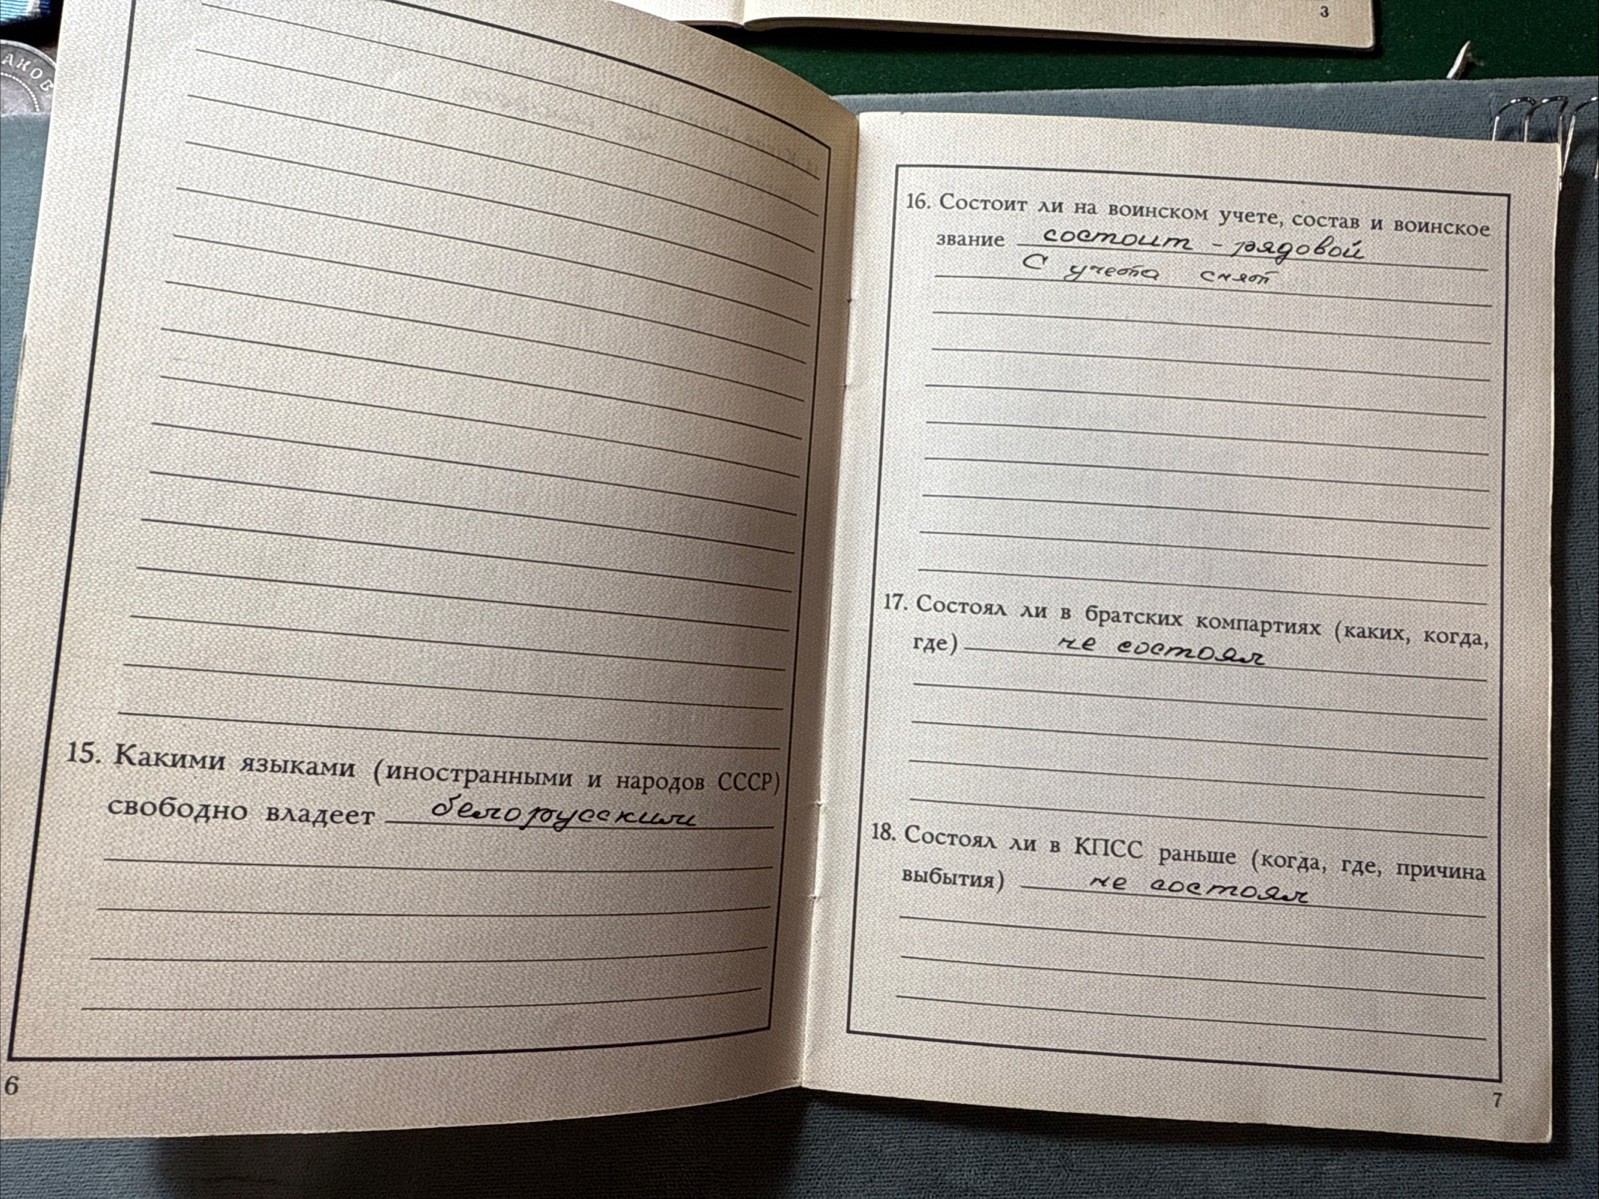 3
АКОВ
15. Какими языками (иностранными и народов СССР)
свободно владеет белорусским
6
16. Состоит ли на воинском учете, состав и воинское
звание состоит - рядовой
С учета снят
17. Состоял ли в братских компартиях (каких, когда,
где) не состоял
18. Состоял ли в КПСС раньше (когда, где, причина
выбытия) не состоял
7